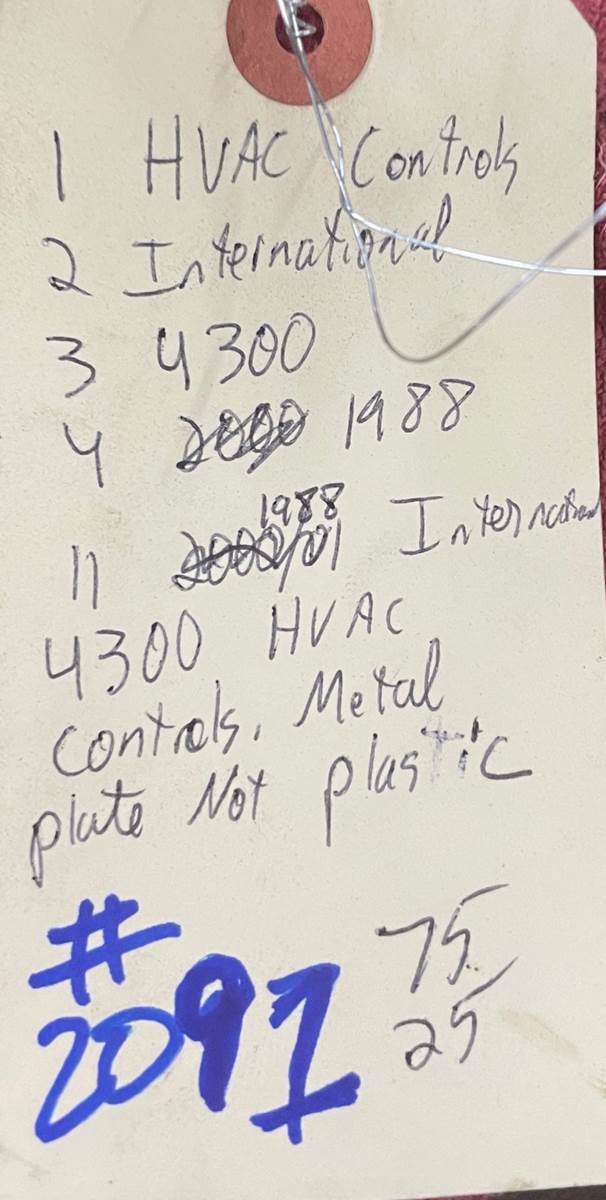 1 HVAC Controls
2 International
3 4300
4 2000 1988
1988
11 2000/01 International
4300 HVAC
controls, Metal
plate Not plastic
#
2091
75
25